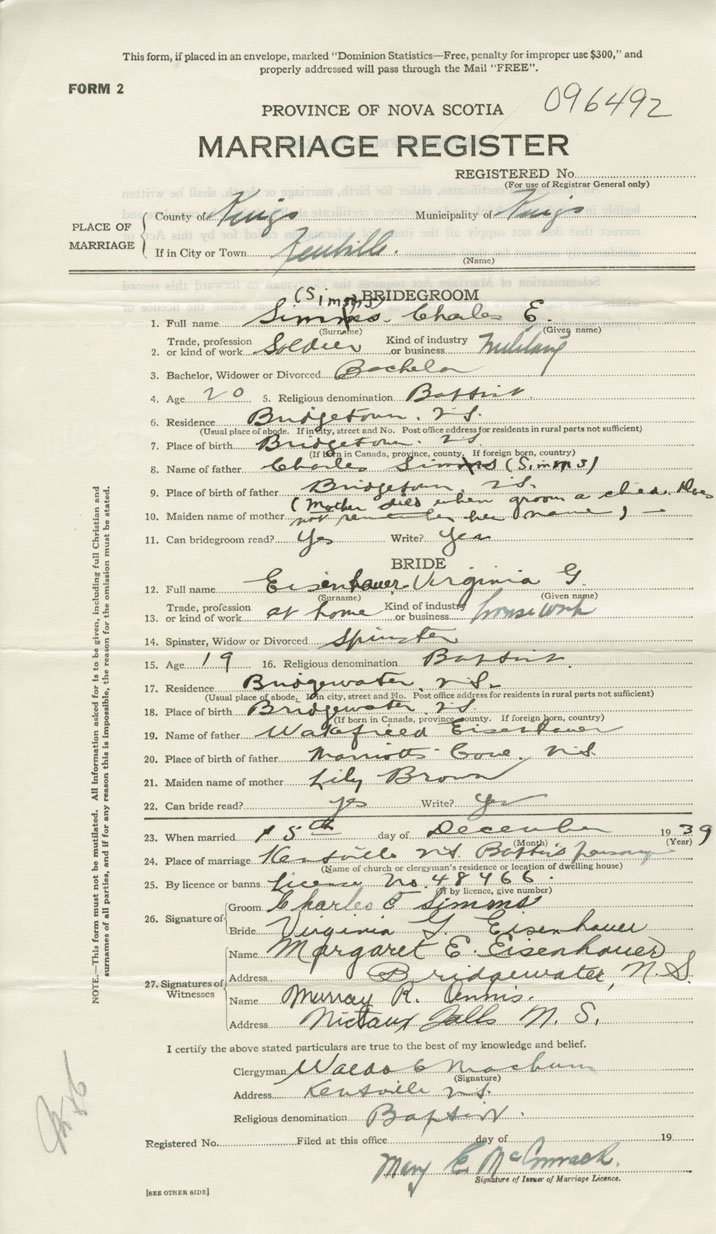 This form, if placed in an envelope, marked "Dominion Statistics—Free, penalty for improper use $300," and
properly addressed will pass through the Mail "FREE".
FORM 2
096492
PROVINCE OF NOVA SCOTIA
MARRIAGE REGISTER
REGISTERED No.
(For use of Registrar General only)
PLACE OF MARRIAGE
County of Kings Municipality of Kings
If in City or Town Kentville.
(Name)
BRIDEGROOM
(Simms)
1. Full name Simms, Charles E.
(Surname) (Given name)
2. Trade, profession or kind of work Soldier Kind of industry or business Military
3. Bachelor, Widower or Divorced Bachelor
4. Age 20 5. Religious denomination Baptist
6. Residence Bridgetown, N.S.
(Usual place of abode. If in city, street and No. Post office address for residents in rural parts not sufficient)
7. Place of birth Bridgetown. N.S.
(If born in Canada, province, county. If foreign born, country)
8. Name of father Charles Simms (Simms)
9. Place of father Bridgetown, N.S.
10. Maiden name of mother (Mother died when groom a child. Does not remember her name)
11. Can bridegroom read? Yes Write? Yes
BRIDE
12. Full name Eisenhauer Virginia G.
(Surname) (Given name)
13. Trade, profession or kind of work at home Kind of industry or business housework
14. Spinster, Widow or Divorced Spinster
15. Age 19 16. Religious denomination Baptist.
17. Residence Bridgewater, N.S.
(Usual place of abode. If in city, street and No. Post office address for residents in rural parts not sufficient)
18. Place of birth Bridgewater, N.S.
(If born in Canada, province, county. If foreign born, country)
19. Name of father Eisenhauer
20. Place of birth of father Marriotts Cove, N.S.
21. Maiden name of mother Lily Brown
22. Can bride read? yes Write? Yes
23. When married 15th day of December 1939
(Month) (Year)
24. Place of marriage Kentville N.S. Baptist parsonage
(Name of church or clergyman's residence or location of dwelling house)
25. By licence or banns Licence No. 48466
(If by licence, give number)
26. Signature of
Groom Charles E Simms
Bride Virginia G. Eisenhauer
27. Signatures of Witnesses
Name Margaret E. Eisenhauer
Address Bridgewater, N.S.
Name Murray R. Annis.
Address Nictaux Falls N. S.
I certify the above stated particulars are true to the best of my knowledge and belief.
Clergyman Waldo C Machum
(Signature)
Address Kentville N.S.
Religious denomination Baptist.
Registered No. Filed at this office day of 19
Mary E. McCormack.
Signature of Issuer of Marriage Licence.
[SEE OTHER SIDE]
NOTE.—This form must not be mutilated. All Information asked for is to be given, including full Christian and
surnames of all parties, and if for any reason this is impossible, the reason for the omission must be stated.